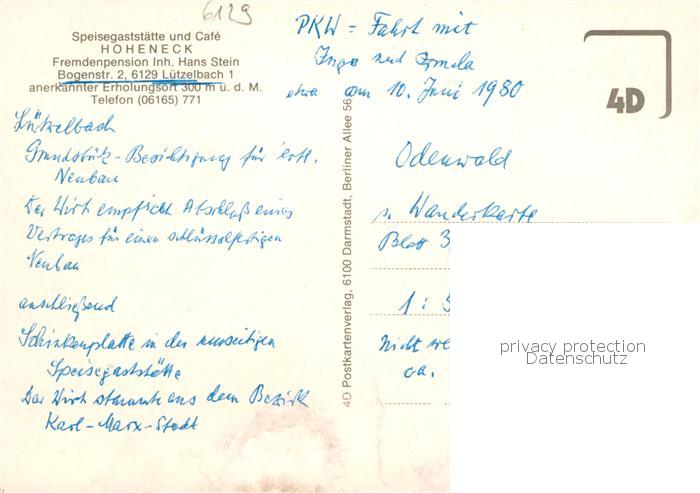 6129
Speisegaststätte und Café
HOHENECK
Fremdenpension Inh. Hans Stein
Bogenstr. 2, 6129 Lützelbach 1
anerkannter Erholungsort 300 m ü. d. M.
Telefon (06165) 771
PKW = Fahrt mit
Inge und
etwa am 10. Juni 1980
4D
Lützelbach
Grundstück-Besichtigung für
Neubau
Der Wirt empficht Abschluß eines
Vertrages für einen schlüsselfertigen
Neubau
anschließend
Schinkenplatte in der
Speisegaststätte
Der Wirt stammt aus dem Bezirk
Karl-Marx-Stadt
4D Postkartenverlag, 6100 Darmstadt, Berliner Allee 56
Odenwald
s. Wanderkarte
Blatt 3
1 : 5
Nicht we
ca.
privacy protection
Datenschutz